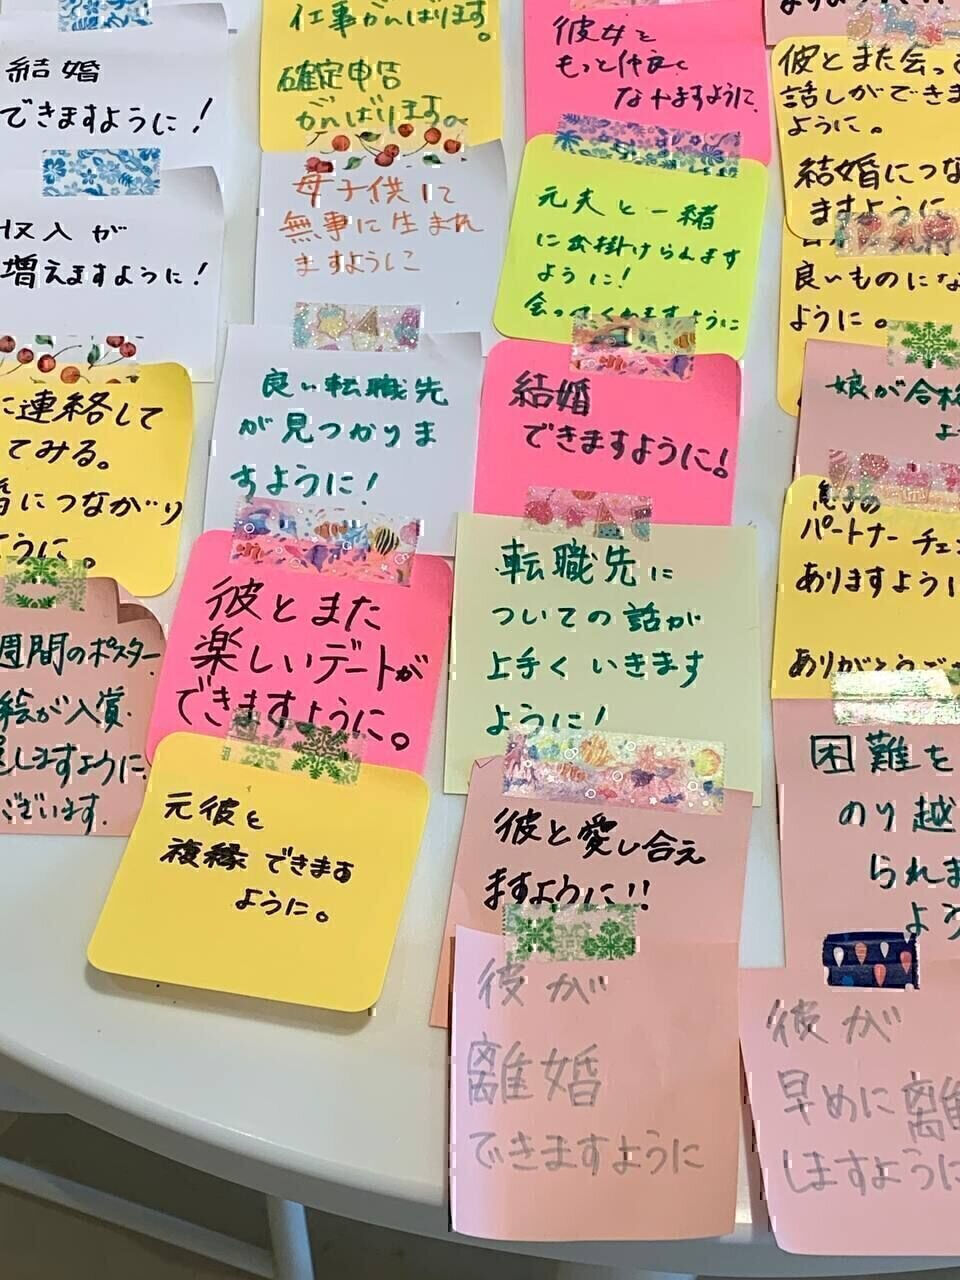 結婚
できますように!
収入が
増えますように!
に連絡して
てみる。
につながり
ように。
週間のポスター
絵が入賞
しますように
ございます。
仕事がんばります。
確定申告
がんばります。
母子供に
無事に生まれ
ますように
良い転職先
が見つかりま
すように!
彼とまた
楽しいデートが
できますように。
元彼と
複縁できます
ように。
彼女と
もっと仲良く
なれますように
元夫と一緒
にお出掛けられます
ように!
会ってくれますように
結婚
できますように!
転職先に
ついての話が
上手くいきます
ように!
彼と愛し合え
ますように!!
彼が
離婚
できますように
彼とまた会っ
話しができま
ように。
結婚につな
ますように
良いものにな
ように。
娘が合格
よ
息子の
パートナー チェ
ありますように
ありがとうござ
困難を
のり越
られま
よう
彼が
早めに離
しますように